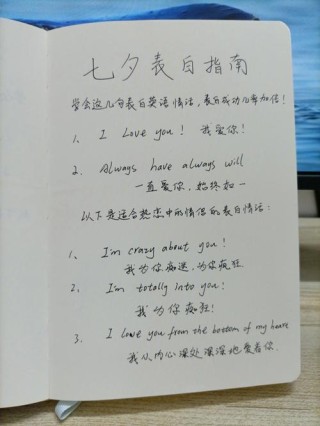 七夕表白指南
学会这几句表白英语情话,表白成功几率加倍!
1、 I Love you! 我爱你!
2、 Always have always will
一直爱你,始终如一
以下是适合热恋中的情侣的表白情话:
1、 I'm crazy about you!
我为你痴迷,为你疯狂
2、 I'm totally into you!
我为你痴狂!
3、 I love you from the bottom of my heart
我从内心深处深深地爱着你.